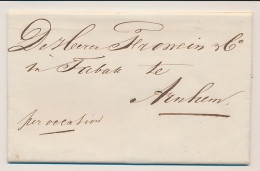 De Heeren Fromein & Co
in Tabak te
Arnhem.
per occasion